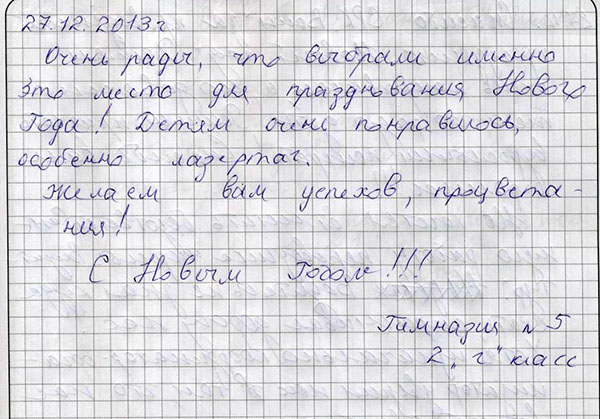 27.12.2013г
Очень рады, что выбрали именно
это место для празднования Нового
Года! Детям очень понравилось,
особенно лазертаг.
Желаем вам успехов, процвета-
ния!
С Новым Годом!!!
Гимназия № 5
2 „г" класс